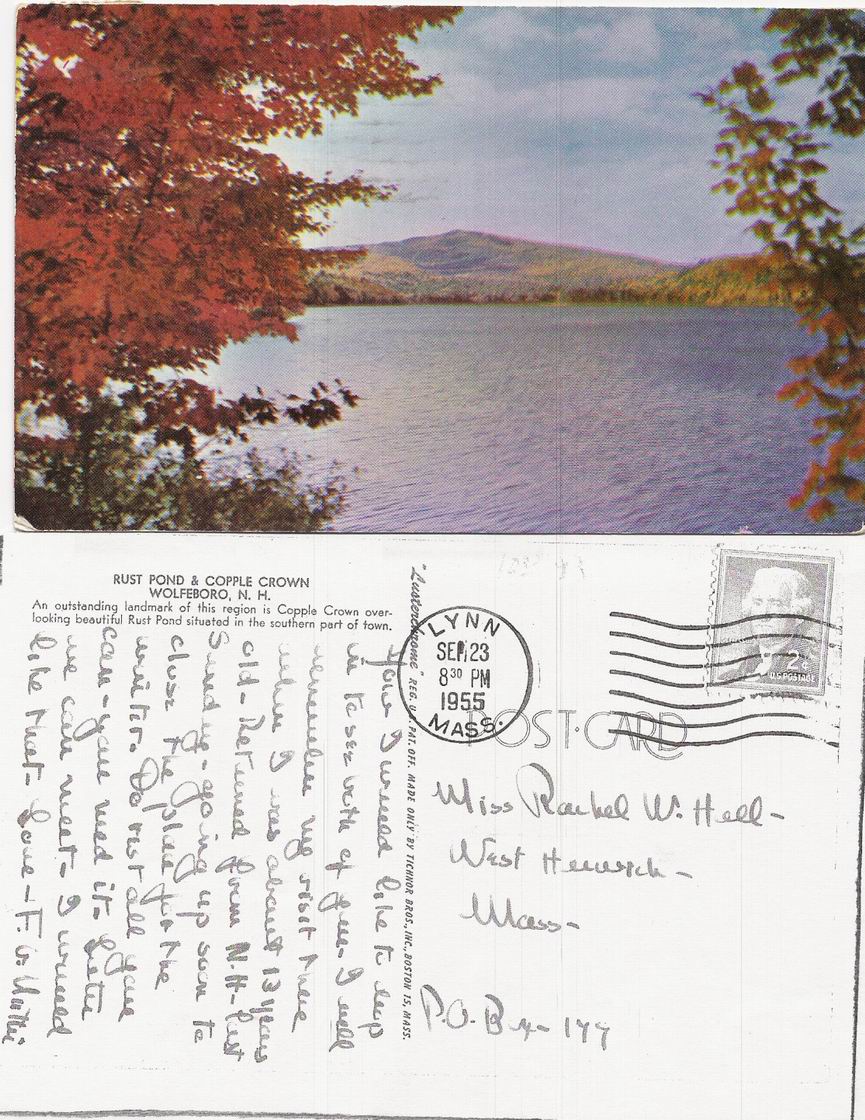 RUST POND & COPPLE CROWN
WOLFEBORO, N. H.
An outstanding landmark of this region is Copple Crown over-
looking beautiful Rust Pond situated in the southern part of town.
"Lusterchrome" REG. U.S. PAT. OFF. MADE ONLY BY TICHNOR BROS., INC., BOSTON 15, MASS.
LYNN
SEP 23
8 30 PM
1955
MASS.
2¢
U.S. POSTAGE
POST CARD
Miss Rachel W. Hall-
West Harwich-
Mass-
P.O. Box- 177
I would like to
in to see both of you- I well
remember my visit there
when I was about 13 years
old- Returned from N.H- last
Sunday- going up soon to
close the place for the
winter. Do rest all you
can- you need it.
we can meet- I would
like that- Love-